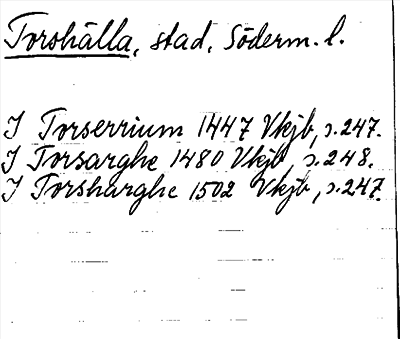 Torshälla, stad, Söderm. l.
J Torserrium 1447 Vkjb, s. 247.
J Torsarghe 1480 Vkjb, s. 248.
J Torsharghe 1502 Vkjb, s. 247.